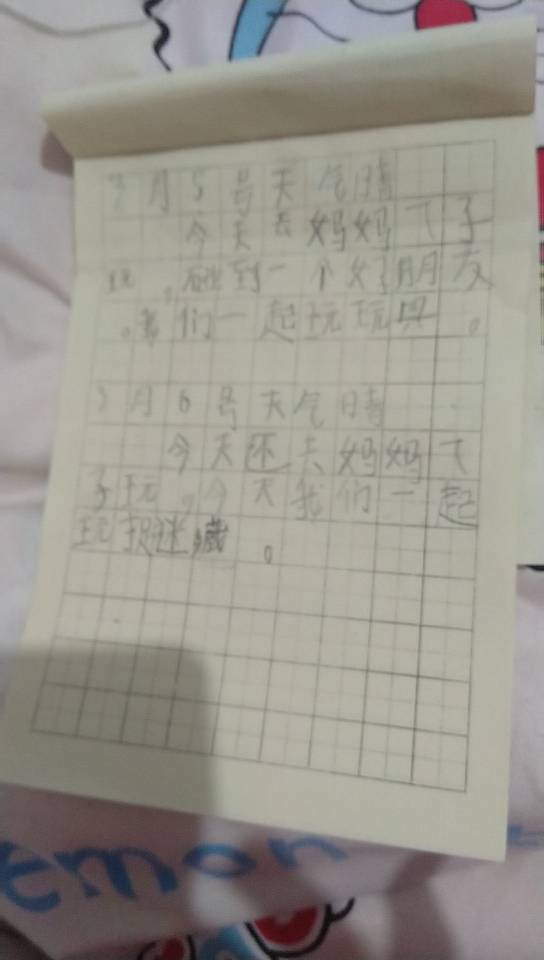 3月5号天气晴
今天去妈妈下子
玩,碰到一个好朋友
。我们一起玩玩具。
3月6号天气晴
今天还去妈妈下
子玩,今天我们一起
玩捉迷藏。
emon